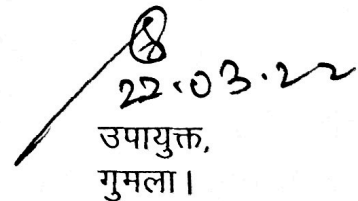 22.03.22
उपायुक्त,
गुमला।